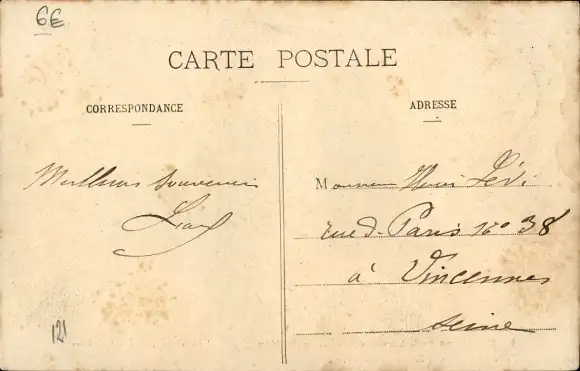 6E
CARTE POSTALE
CORRESPONDANCE
ADRESSE
Meilleurs souvenirs
Monsieur Henri Lévi
rue d. Paris No 38
à Vincennes
Seine
121